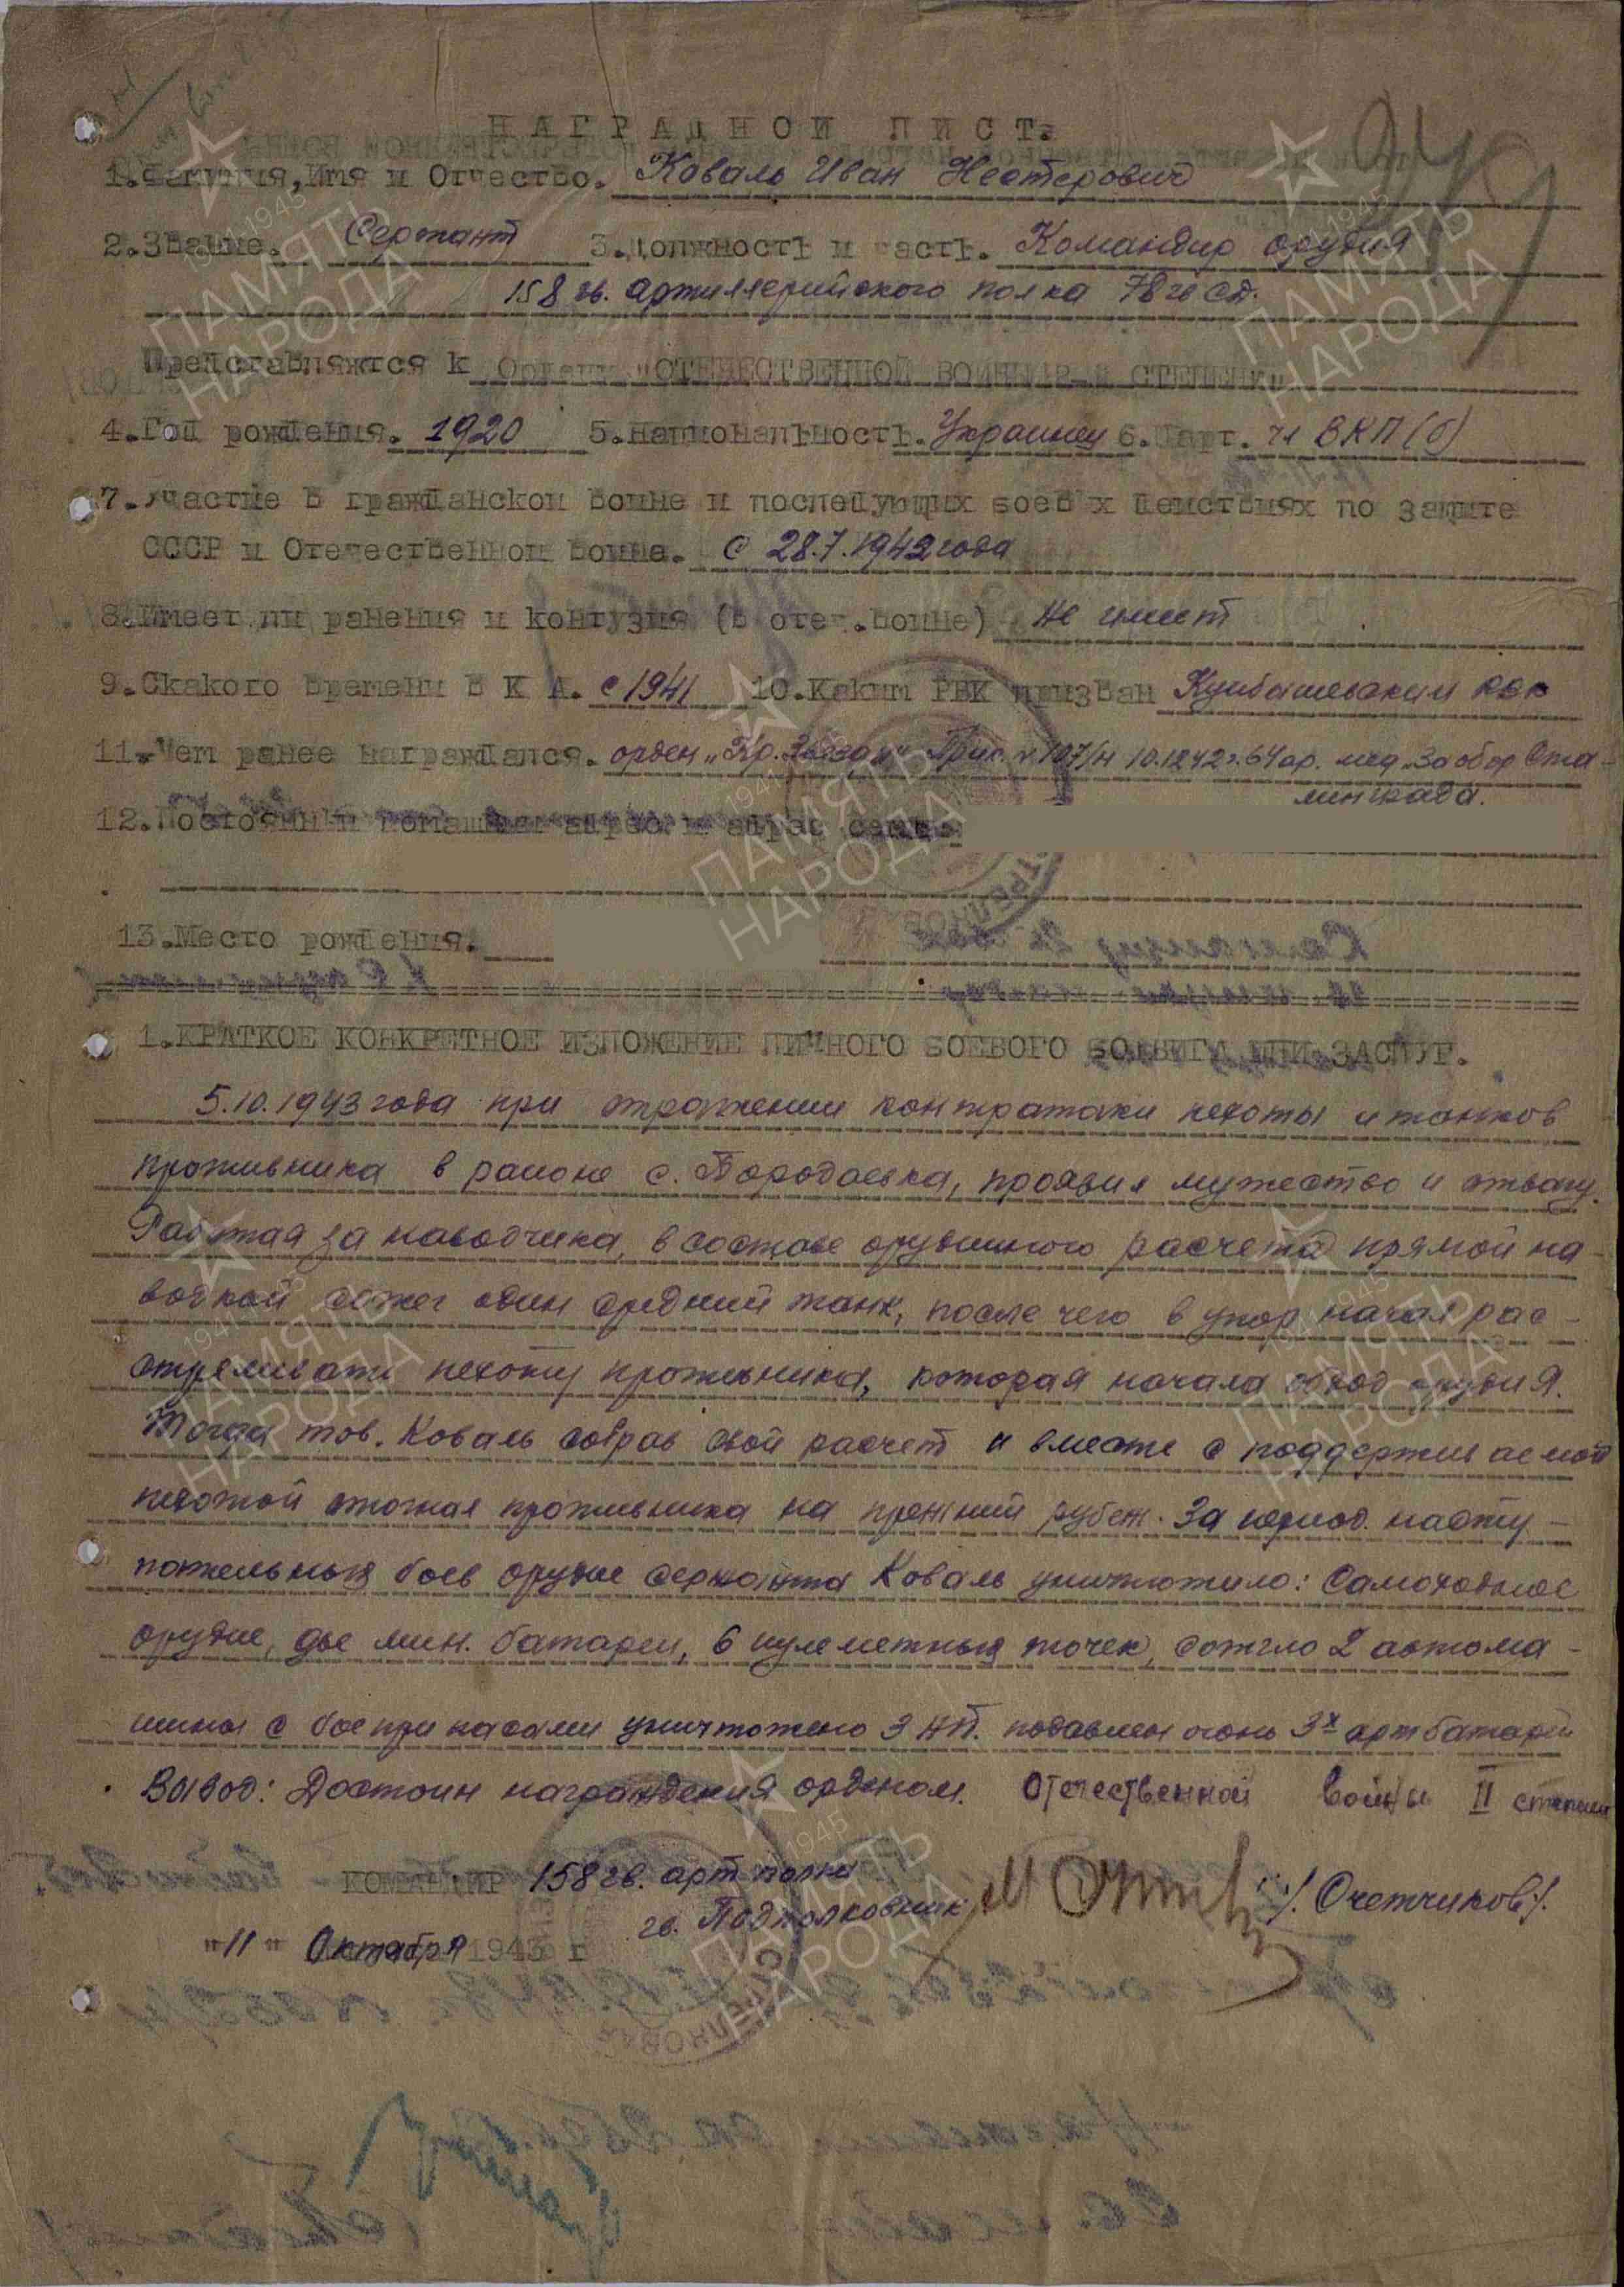 НАГРАДНОЙ ЛИСТ.
1.Фамилия,Имя и Отчество. Коваль Иван Нестерович
2.Звание. Сержант 3.Должность и часть. Командир орудия
158 гв. артиллерийского полка 78 гв сд.
Представляется к Ордену "ОТЕЧЕСТВЕННОЙ ВОЙНЫ СТЕПЕНИ"
4.Год рождения. 1920 5.Национальность. Украинец 6.Парт. чл ВКП(б)
7.Участие в гражданской войне и последующих боевых действиях по защите
СССР и Отечественной войне. с 28.7.1942 года
8.Имеет ли ранения и контузия (в отеч.войне) Не имеет
9.Скакого времени в К А. с 1941 10.Каким РВК призван Куйбышевским РВК
11.Чем ранее награждался. орден „Кр. Звезды" Прик. № 107/н 10.12.42 г. 64 ар. мед. За обор Ста-
линграда.
12.Постоянный домашний адрес и адрес семьи.
13.Место рождения.
1.КРАТКОЕ КОНКРЕТНОЕ ИЗЛОЖЕНИЕ ЛИЧНОГО БОЕВОГО ПОДВИГА ИЛИ ЗАСЛУГ.
5.10.1943 года при отражении контратаки пехоты и танков
противника в районе с. Бородаевка, проявил мужество и отвагу.
Работая за наводчика, в составе орудийного расчета прямой на-
водкой сжег один средний танк, после чего в упор начал рас-
стреливать пехоту противника, которая начала обход орудия.
Тогда тов. Коваль собрав свой расчет и вместе с поддерживаемой
пехотой отогнал противника на прежний рубеж. За период насту-
пательных боев орудие сержанта Коваль уничтожило: Самоходное
орудие, две мин. батареи, 6 пулеметных точек, сожгло 2 автома-
шины с боеприпасами уничтожено 3 НП. подавлен огонь 3х артбатарей
Вывод: Достоин награждения орденом Отечественной Войны II степени
КОМАНДИР 158 гв. арт полка
гв. Подполковник /. Очетчиков /.
"11" Октября 1943 г
ПАМЯТЬ
НАРОДА
1941-1945